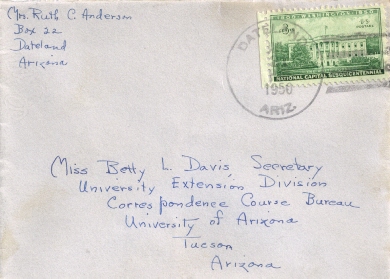 Mrs. Ruth C. Anderson
Box 22
Dateland
Arizona
DATELAND
1950
ARIZ.
NATIONAL CAPITAL SESQUICENTENNIAL
Miss Betty L. Davis, Secretary
University Extension Division
Correspondence Course Bureau
University of Arizona
Tucson
Arizona